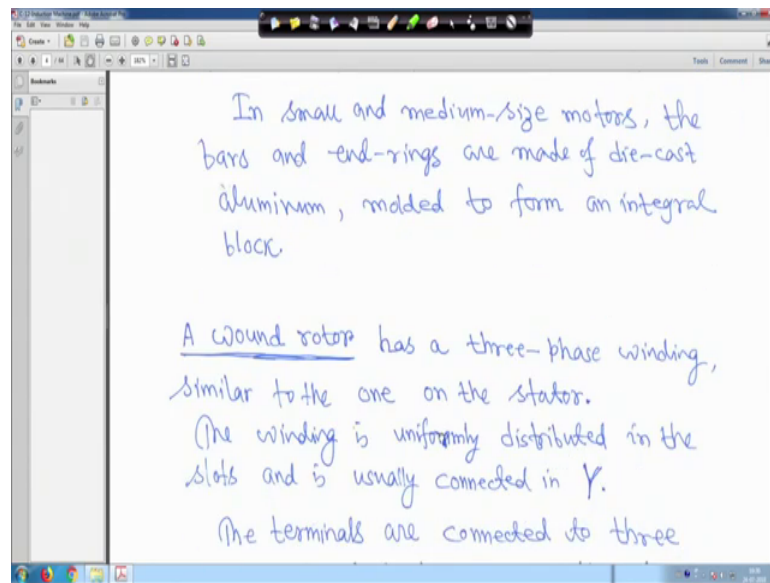 File Edit View Window Help
Create
Tools Comment
Bookmarks
In small and medium-size motors, the
bars and end-rings are made of die-cast
aluminum, molded to form an integral
block.
A wound rotor has a three-phase winding,
similar to the one on the stator.
The winding is uniformly distributed in the
slots and is usually connected in Y.
The terminals are connected to three